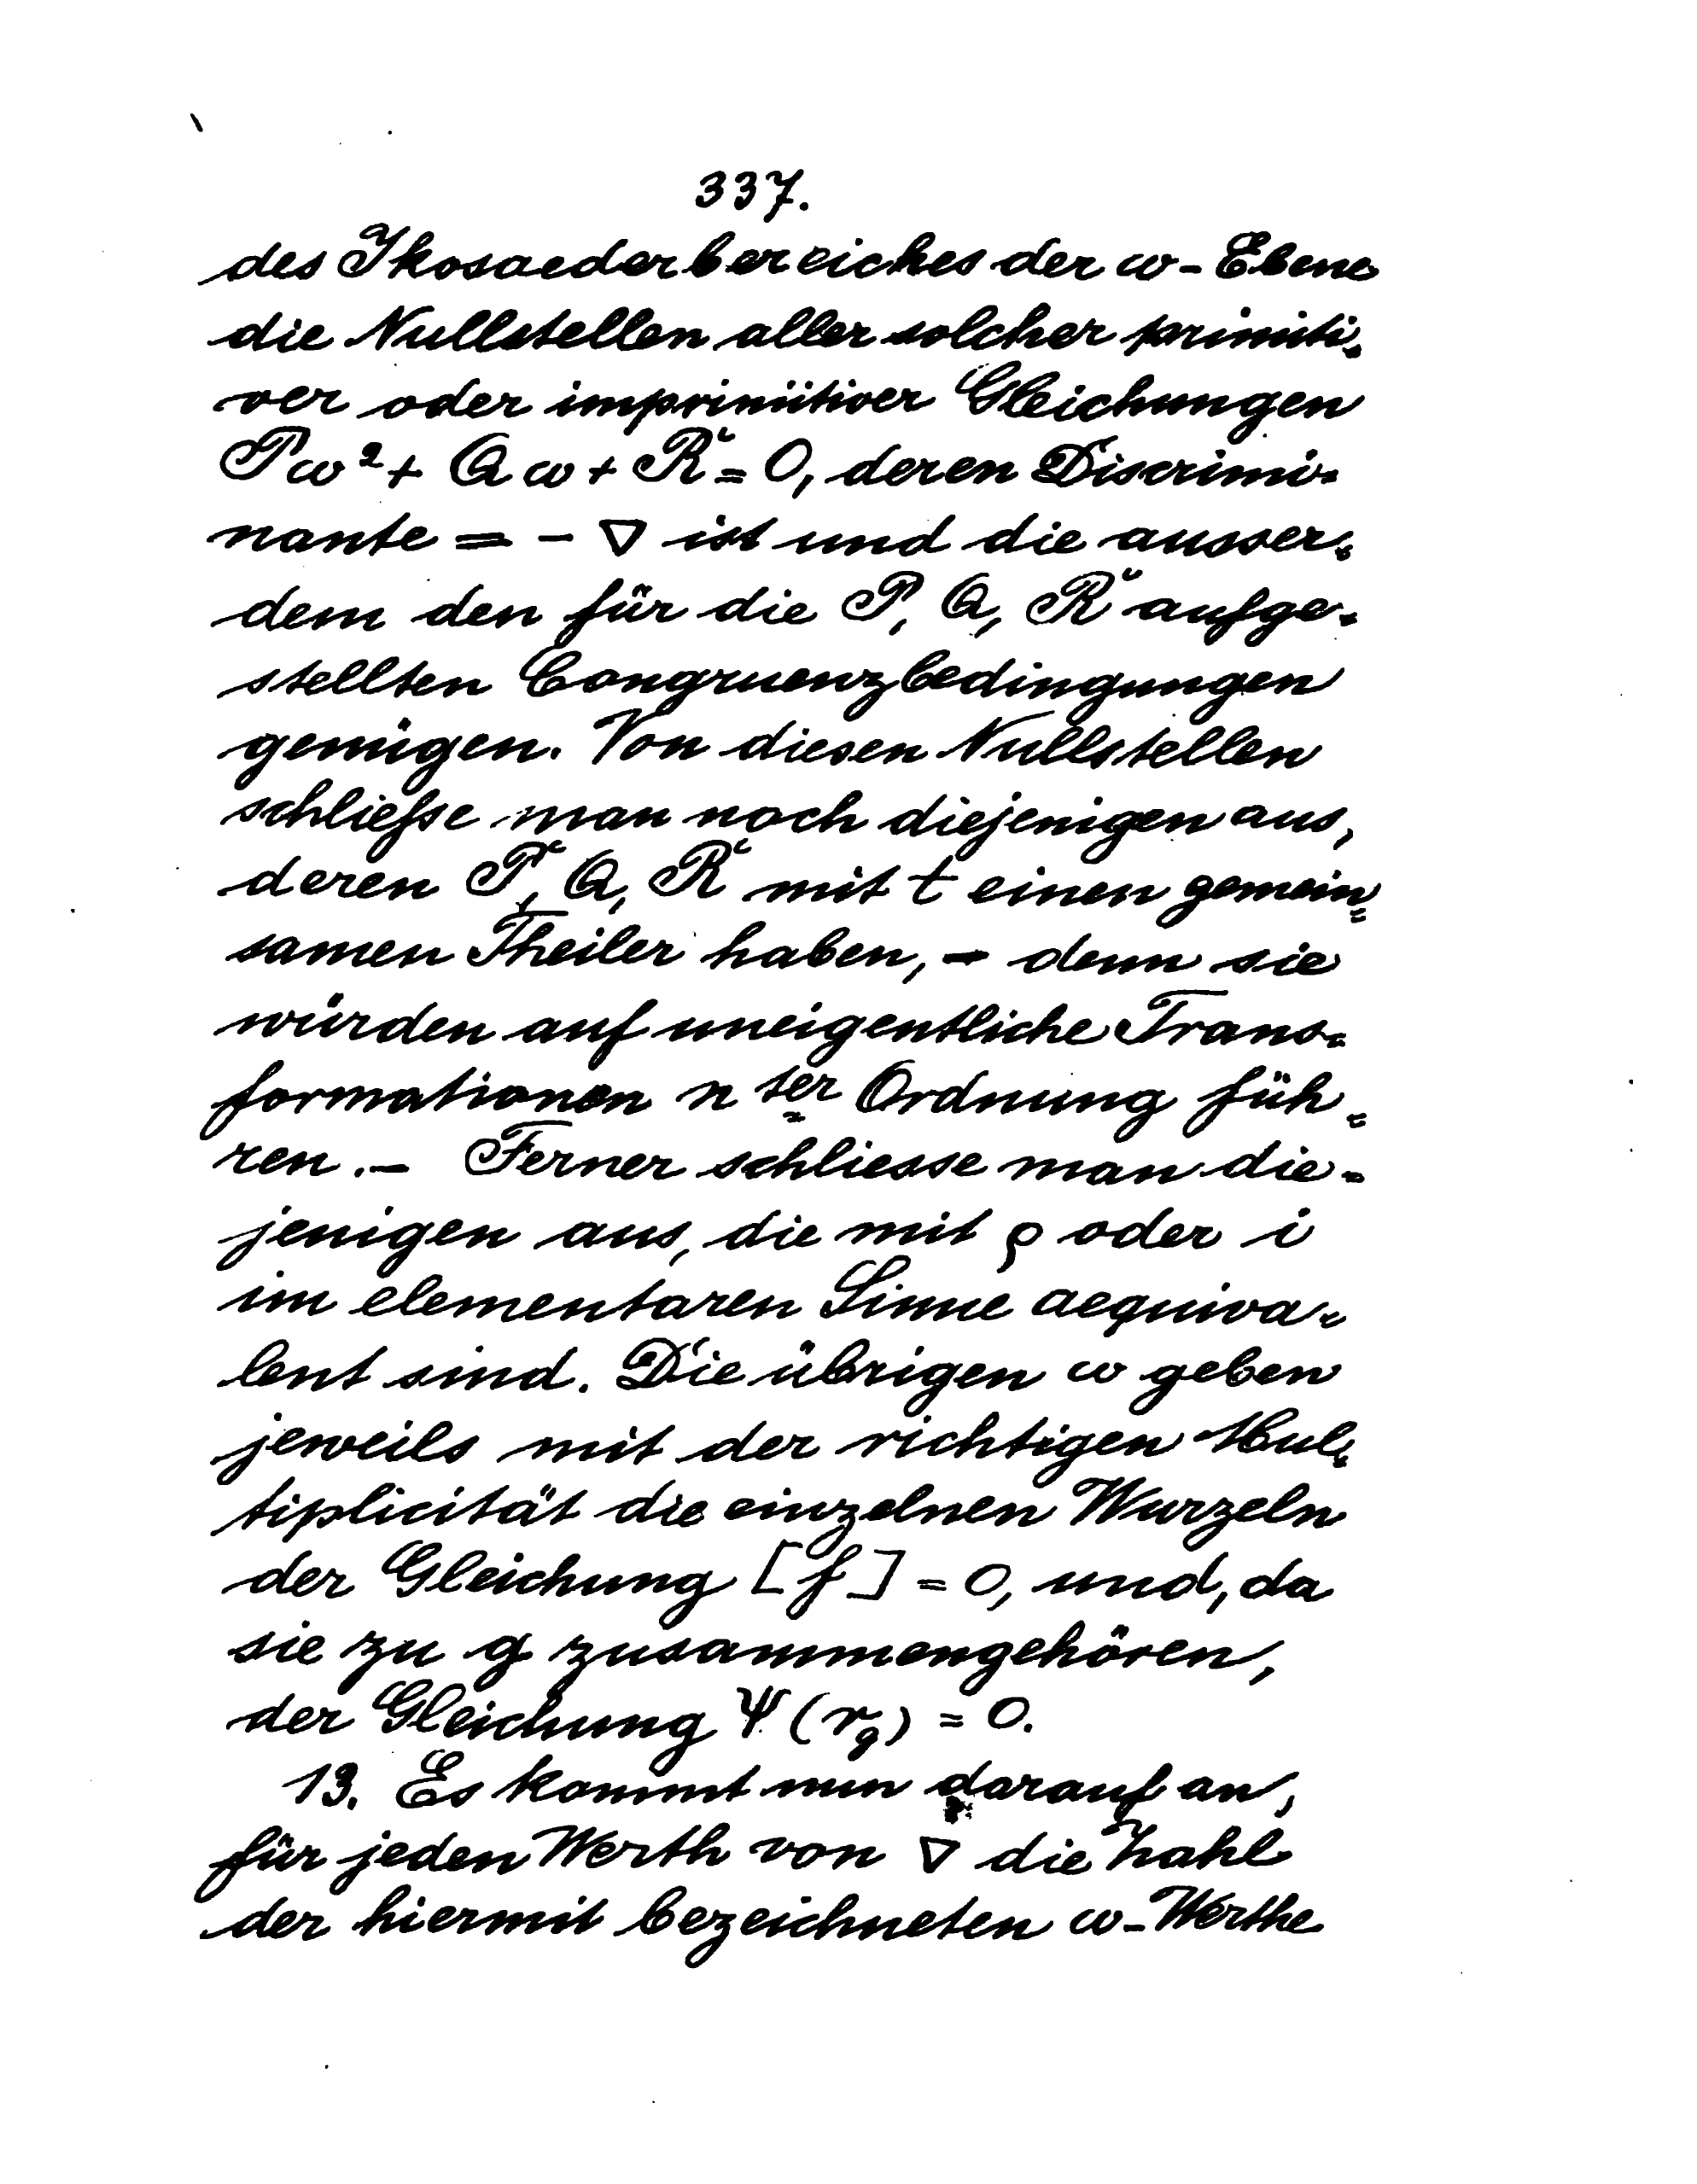 337.
des Ikosaederbereiches der ω-Ebene
die Nullstellen aller solcher primiti-
ver oder imprimitiver Gleichungen
Pω² + Qω + R = 0, deren Discrimi-
nante = - ∇ ist und die ausser-
dem den für die P, Q, R aufge-
stellten Congruenzbedingungen
genügen. Von diesen Nullstellen
schließe man noch diejenigen aus,
deren P, Q, R mit t einen gemein-
samen Theiler haben, - denn sie
würden auf uneigentliche Trans-
formationen n ter Ordnung füh-
ren. - Ferner schliesse man die-
jenigen aus, die mit ρ oder i
im elementaren Sinne aequiva-
lent sind. Die übrigen ω geben
jeweils mit der richtigen Mul-
tiplicität die einzelnen Wurzeln
der Gleichung [f] = 0, und, da
sie zu g zusammengehören,
der Gleichung Ψ(r_g) = 0.
13. Es kommt nun darauf an,
für jeden Werth von ∇ die Zahl
der hiermit bezeichneten ω-Werthe